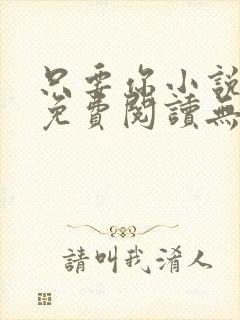 只要你小說
免費閱讀無
請叫我淆人